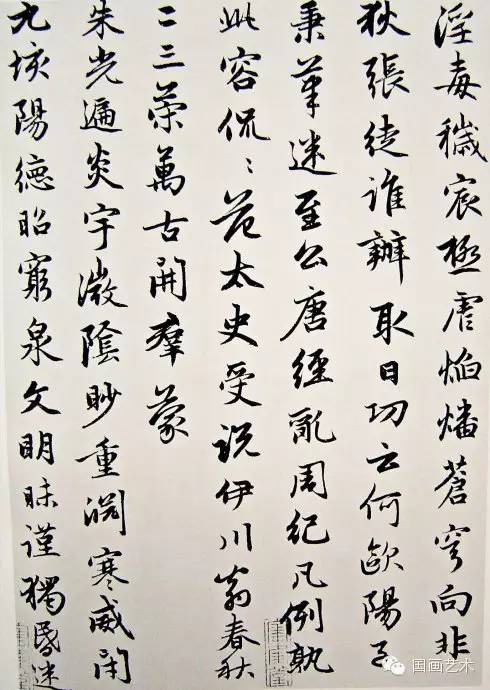 淫毒穢宸極虐焰燔蒼穹向非
狄張徒誰辦取日功云何歐陽子
秉筆迷至公唐經亂周紀凡例孰
此容侃〻范太史受說伊川翁春秋
二三策萬古開羣蒙
朱光遍炎宇微陰眇重淵寒威閉
九垓陽德昭窮泉文明昧謹獨昏迷
国画艺术